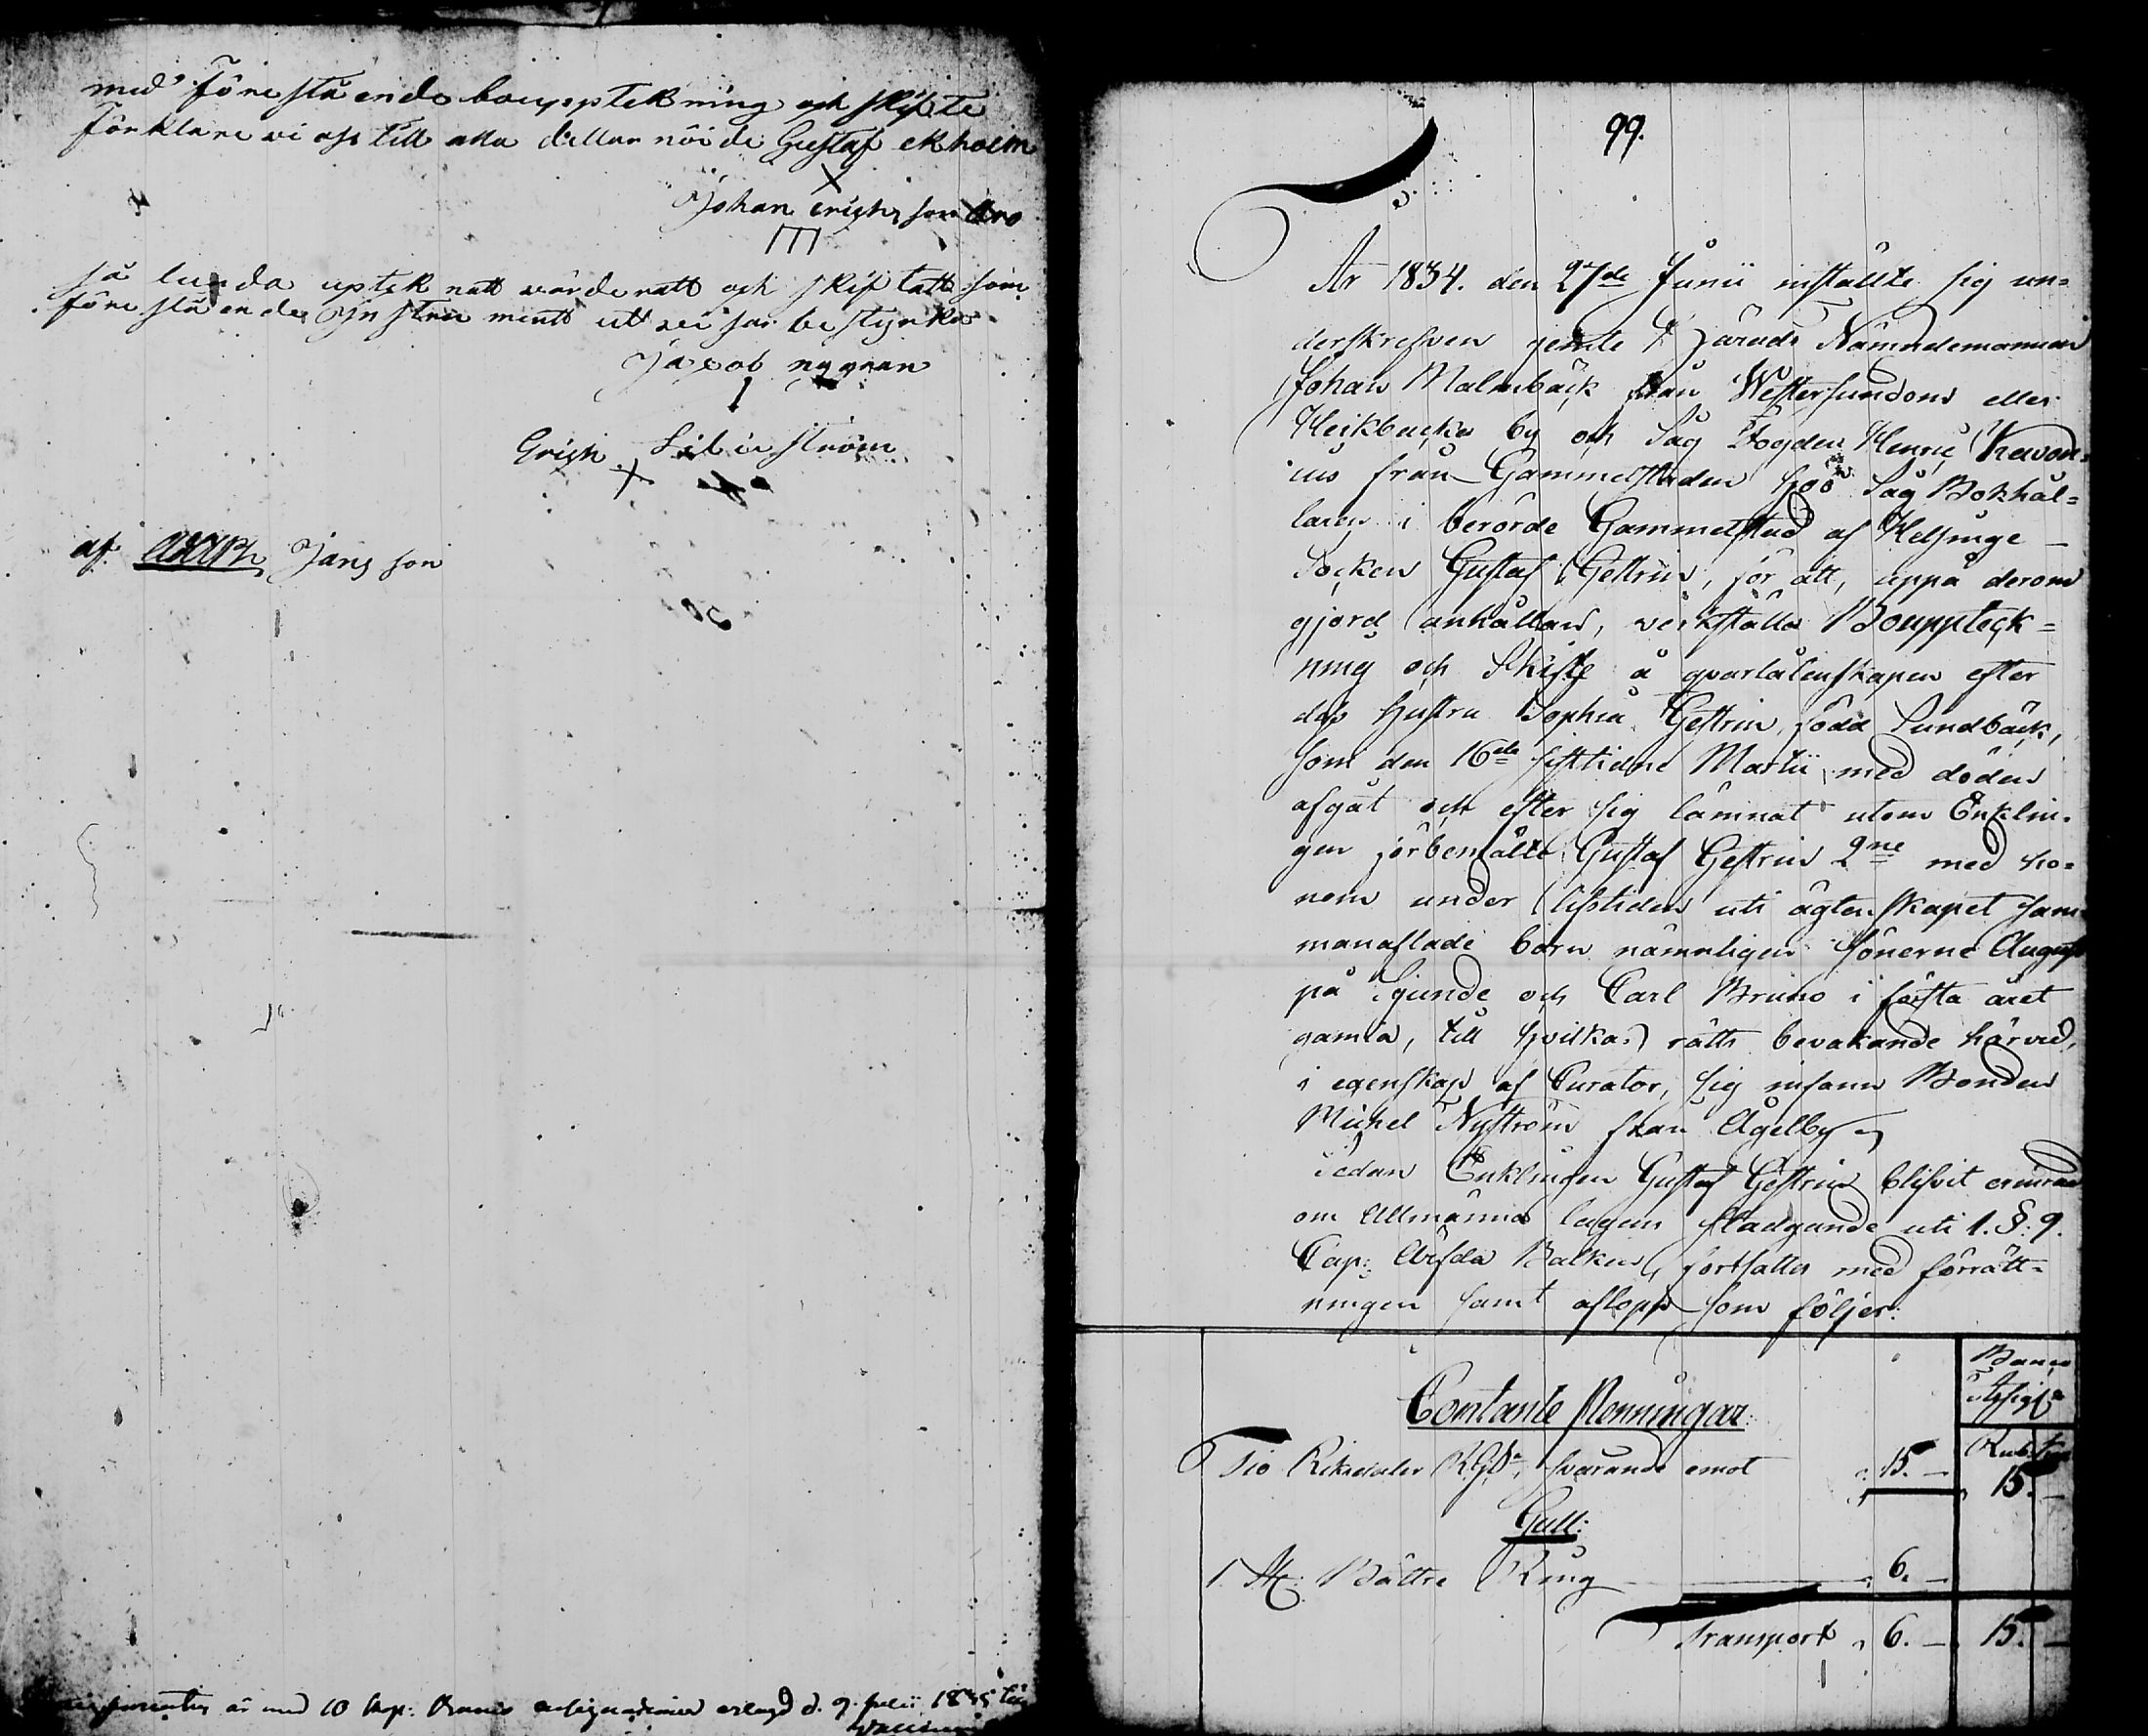 med föreståendo bouppteckning och skifte
förklare vi oss till alla dellar nöide Gustaf ekholm
Johan erichsson
så lunda uptek natt värde ratt och skif tatt som
före stå en de In stru mentt ut vei sar be styrka
Jacob nygran
Erich Lilieström
af Jansson
är med 10 kop: Banco assignationer erlagd d. 9 Julii 1835
99.
År 1834. den 27de Junii installte sig un-
derskrefven jemte Härads Nämndemannen
Johan Malmbäck från Westersundoms eller
by och Såg Fogden Henric
ius från Gammelstaden hos Såg Bokhål-
laren i berörde Gammelstad af Helsinge
Socken Gustaf Gestrin, för att, uppå derom
gjord anhållan, verkställa Bouppteck-
ning och Skifte å qvarlåtenskapen efter
dess Hustru Sophia Gestrin, född Sundbäck,
som den 16de sistledne Martii med döden
afgåt och efter sig lämnat utom Enklin-
gen förbemälte Gustaf Gestrin 2ne med ho-
nom under lifstiden uti ägtenskapet sam-
manaflade barn nämnligen sönerne August
på 5gunde och Carl Bruno i första året
gamla, till hvilkas rätts bevakande härvid,
i egenskap af Curator, sig infann Bonden
Michel Nyström från Ågelby
Sedan Enklingen Gustaf Gestrin blifvit erinrad
om Allmänna lagens stadgande uti 1.§. 9.
Cap: Ärfda Balken, fortsattes med förrätt-
ningen samt aflopp som följer:
Banco
Contante Penningar
Tio Riksdaler RGsr, svarande emot 15. —
15. —
Gull:
1 St: Bättre Ring 6. —
Transport 6. — 15. —